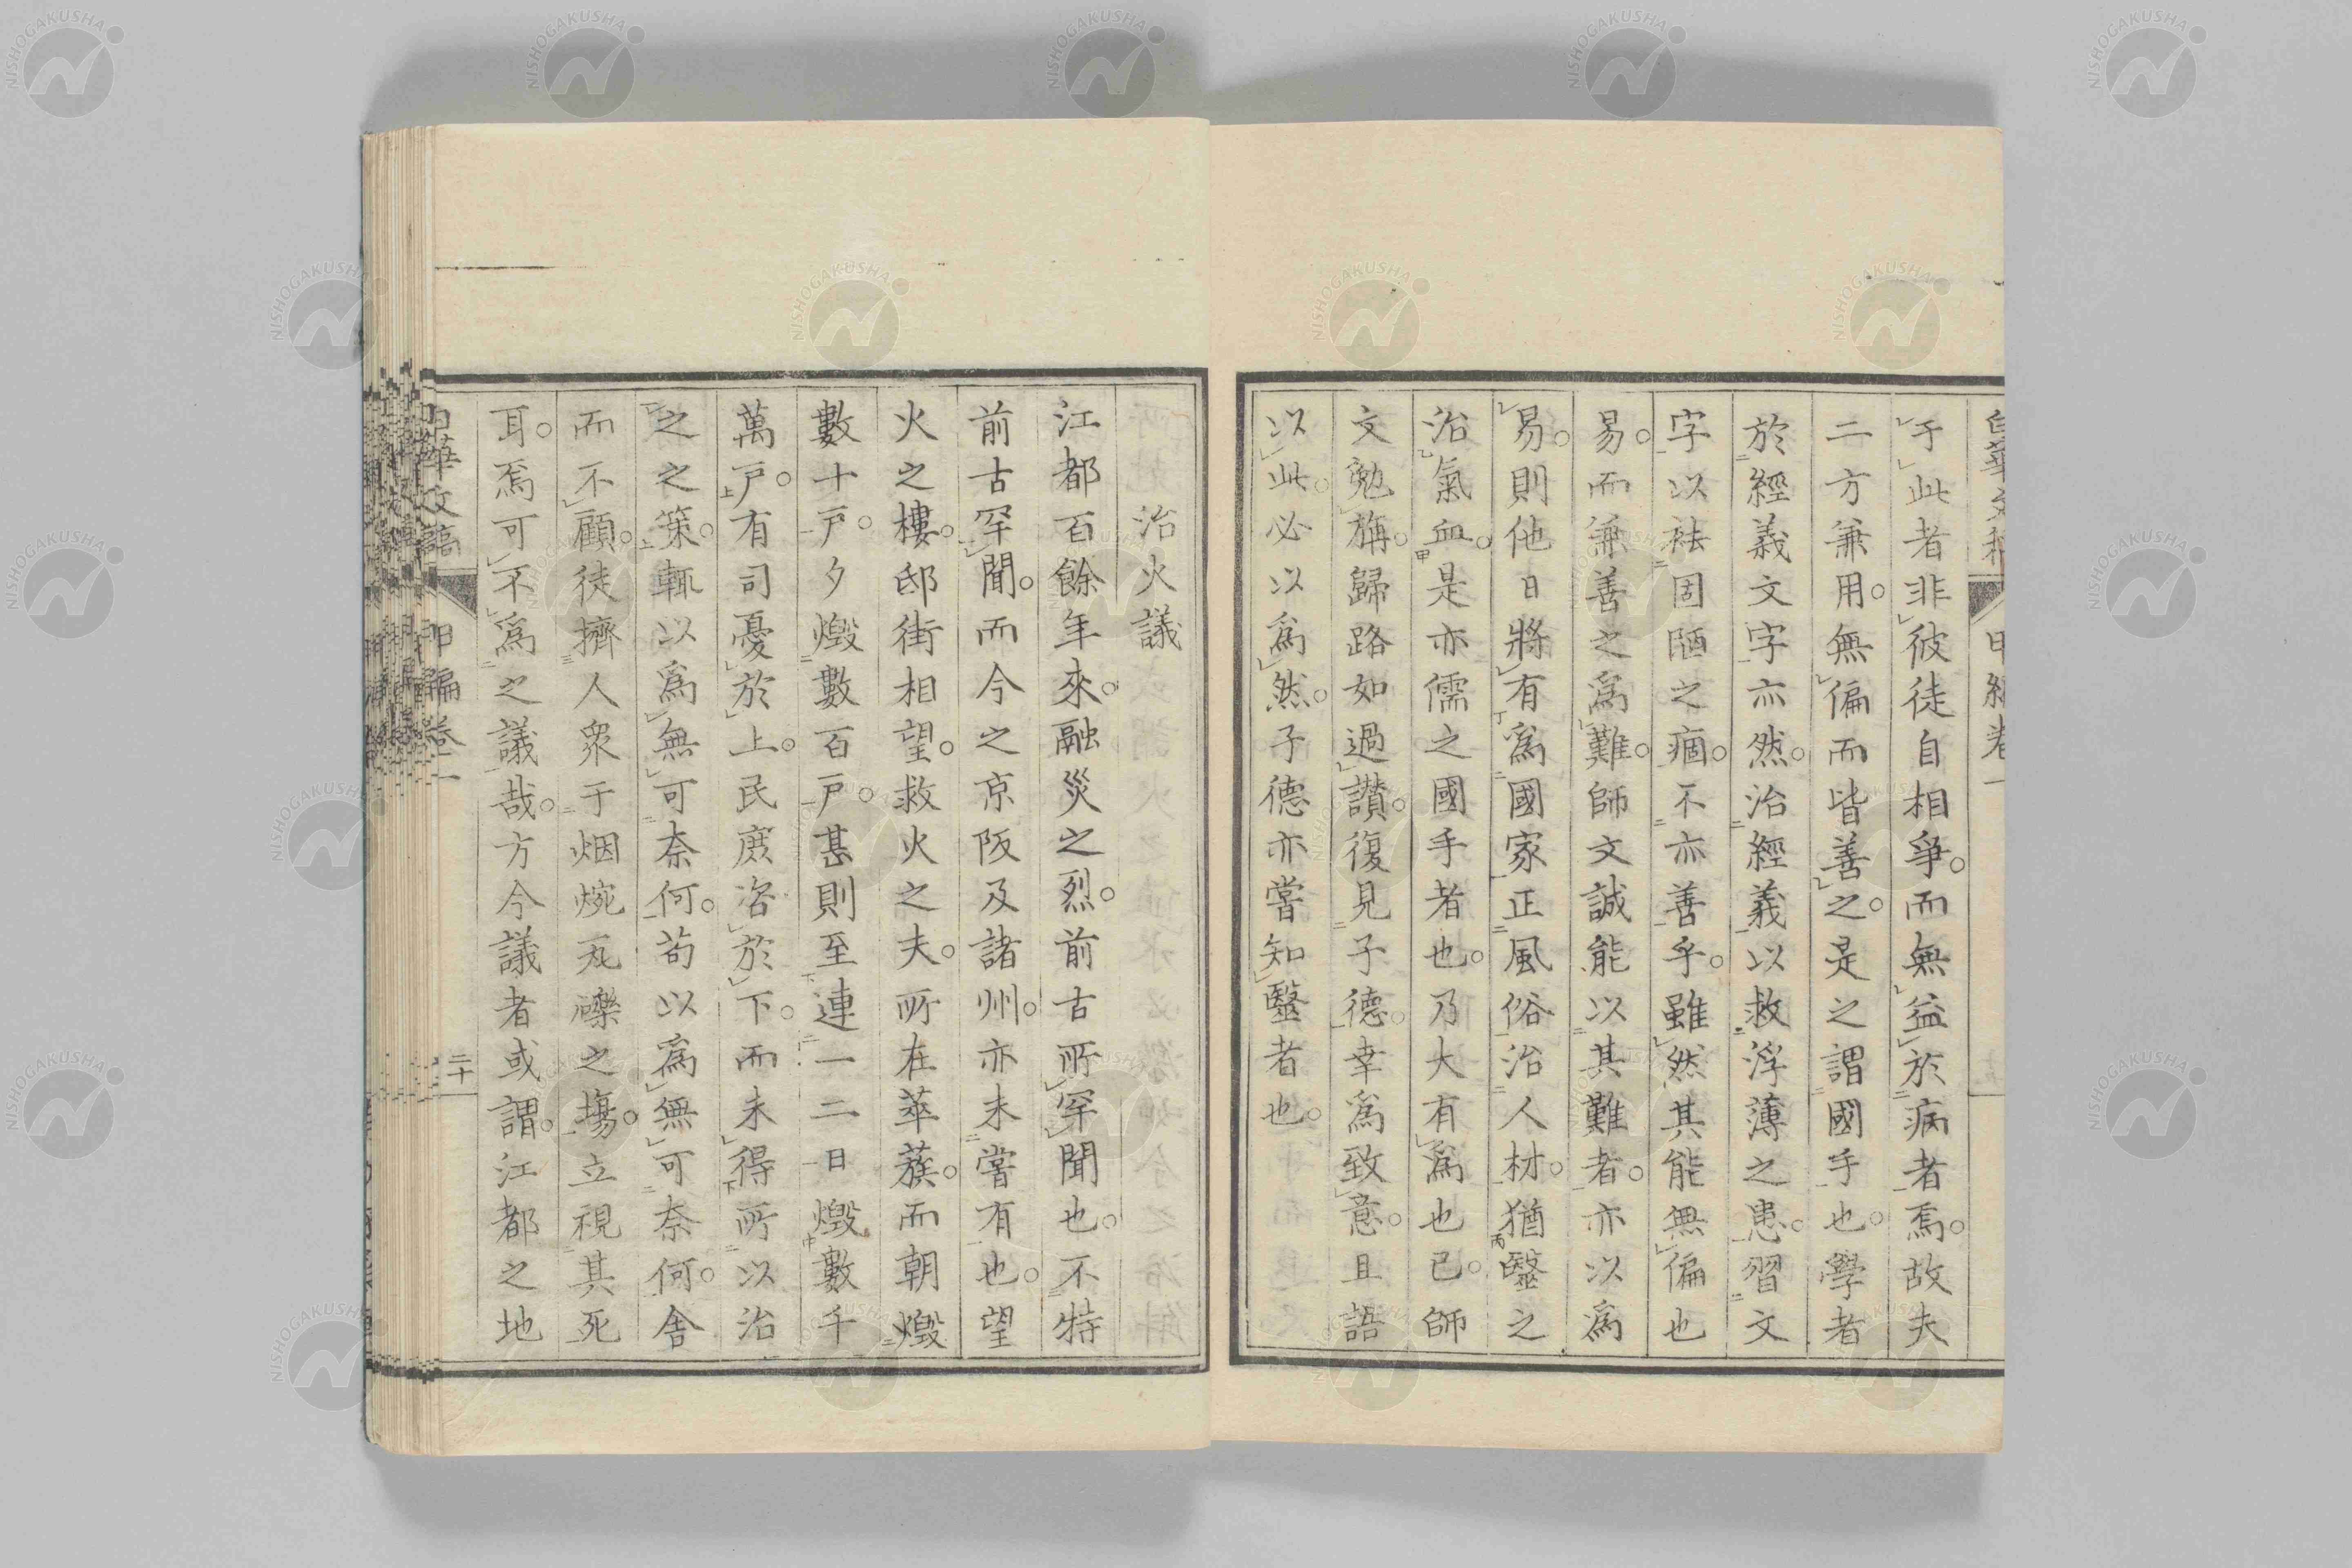 于此者非彼徒自相爭。而無益於病者焉。故夫
二方兼用。無偏而皆善之。是之謂國手也。學者
於經義文字亦然。治經義以救浮薄之患。習文
字以袪固陋之痼。不亦善乎。雖然其能無偏也
易。而兼善之爲難。師文誠能以其難者。亦以爲
易。則他日將有爲國家正風俗治人材。猶醫之
治氣血。是亦儒之國手者也。乃大有爲也已。師
文勉旃。歸路如過讃。復見子德。德幸爲致意。且語
以此。必以爲然。子德亦嘗知醫者也。
治火議
江都百餘年來。融災之烈。前古所罕聞也。不特
前古罕聞。而今之京阪及諸州。亦未嘗有也。望
火之樓。邸街相望。救火之夫。所在萃蔟。而朝燬
數十戸。夕燬數百戸。甚則至連一二日燬數千
萬戸。有司憂於上。民庶咨於下。而未得所以治
之之策。輒以爲無可奈何。苟以爲無可奈何。舍
而不顧。徒擠人衆于烟焥瓦礫之塲。立視其死
耳。焉可不爲之議哉。方今議者或謂。江都之地
白華文稿 甲編卷一 二十
NISHOGAKUSHA